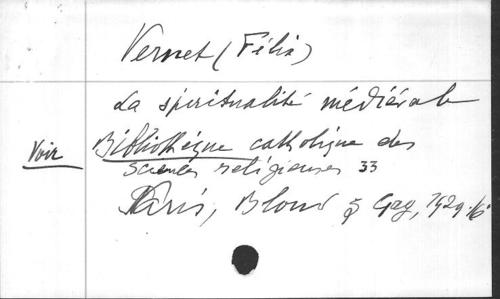 Vernet (Félix)
La spiritualité médiévale
Voir Bibliothèque catholique des
sciences religieuses 33
Paris, Bloud & Gay, 1929. 16°